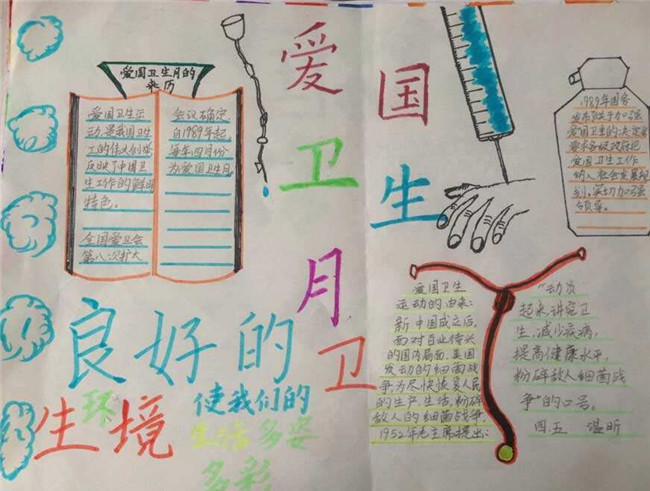 爱国卫生月的
来历
爱国卫生运
动是我国卫生
工的伟大创举
反映了中国卫
生工作的鲜明
特色。
全国爱卫会
第八次扩大
会议确定
自1989年起,
每年四月份
为爱国卫生月
爱国卫生月
卫生
1989年国务
发布关于加强
爱国卫生的决定
要求各级政府把
爱国卫生工作
纳入社会发展规
划,实切加强
领导。
良好的
卫生环境
使我们的
生活多姿
多彩
爱国卫生
运动的由来:
新中国成立之后,
面对百业待头
的国内局面,美国
发动的细菌战
争为尽快恢复人民
的生产生活,粉碎
敌人的细菌战争,
1952年毛主席提出:
“动员
起来,讲究卫
生,减少疾病,
提高健康水平,
粉碎敌人细菌战
争”的口号。
四.五